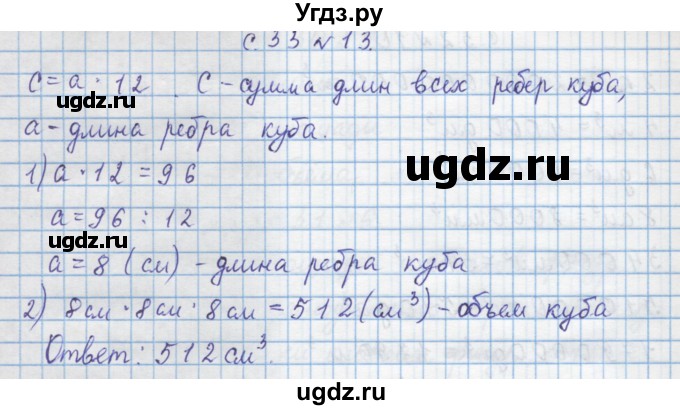 Угдз.ру
С. 33 № 13.
С = а · 12. С - сумма длин всех ребер куба,
ugdz.ru
а - длина ребра куба.
1) а · 12 = 96
ugdz.ru
а = 96 : 12
ugdz.ru
а = 8 (см) - длина ребра куба
2) 8 см · 8 см · 8 см = 512 (см³) - объем куба
ugdz.ru
Ответ: 512 см³.
ugdz.ru